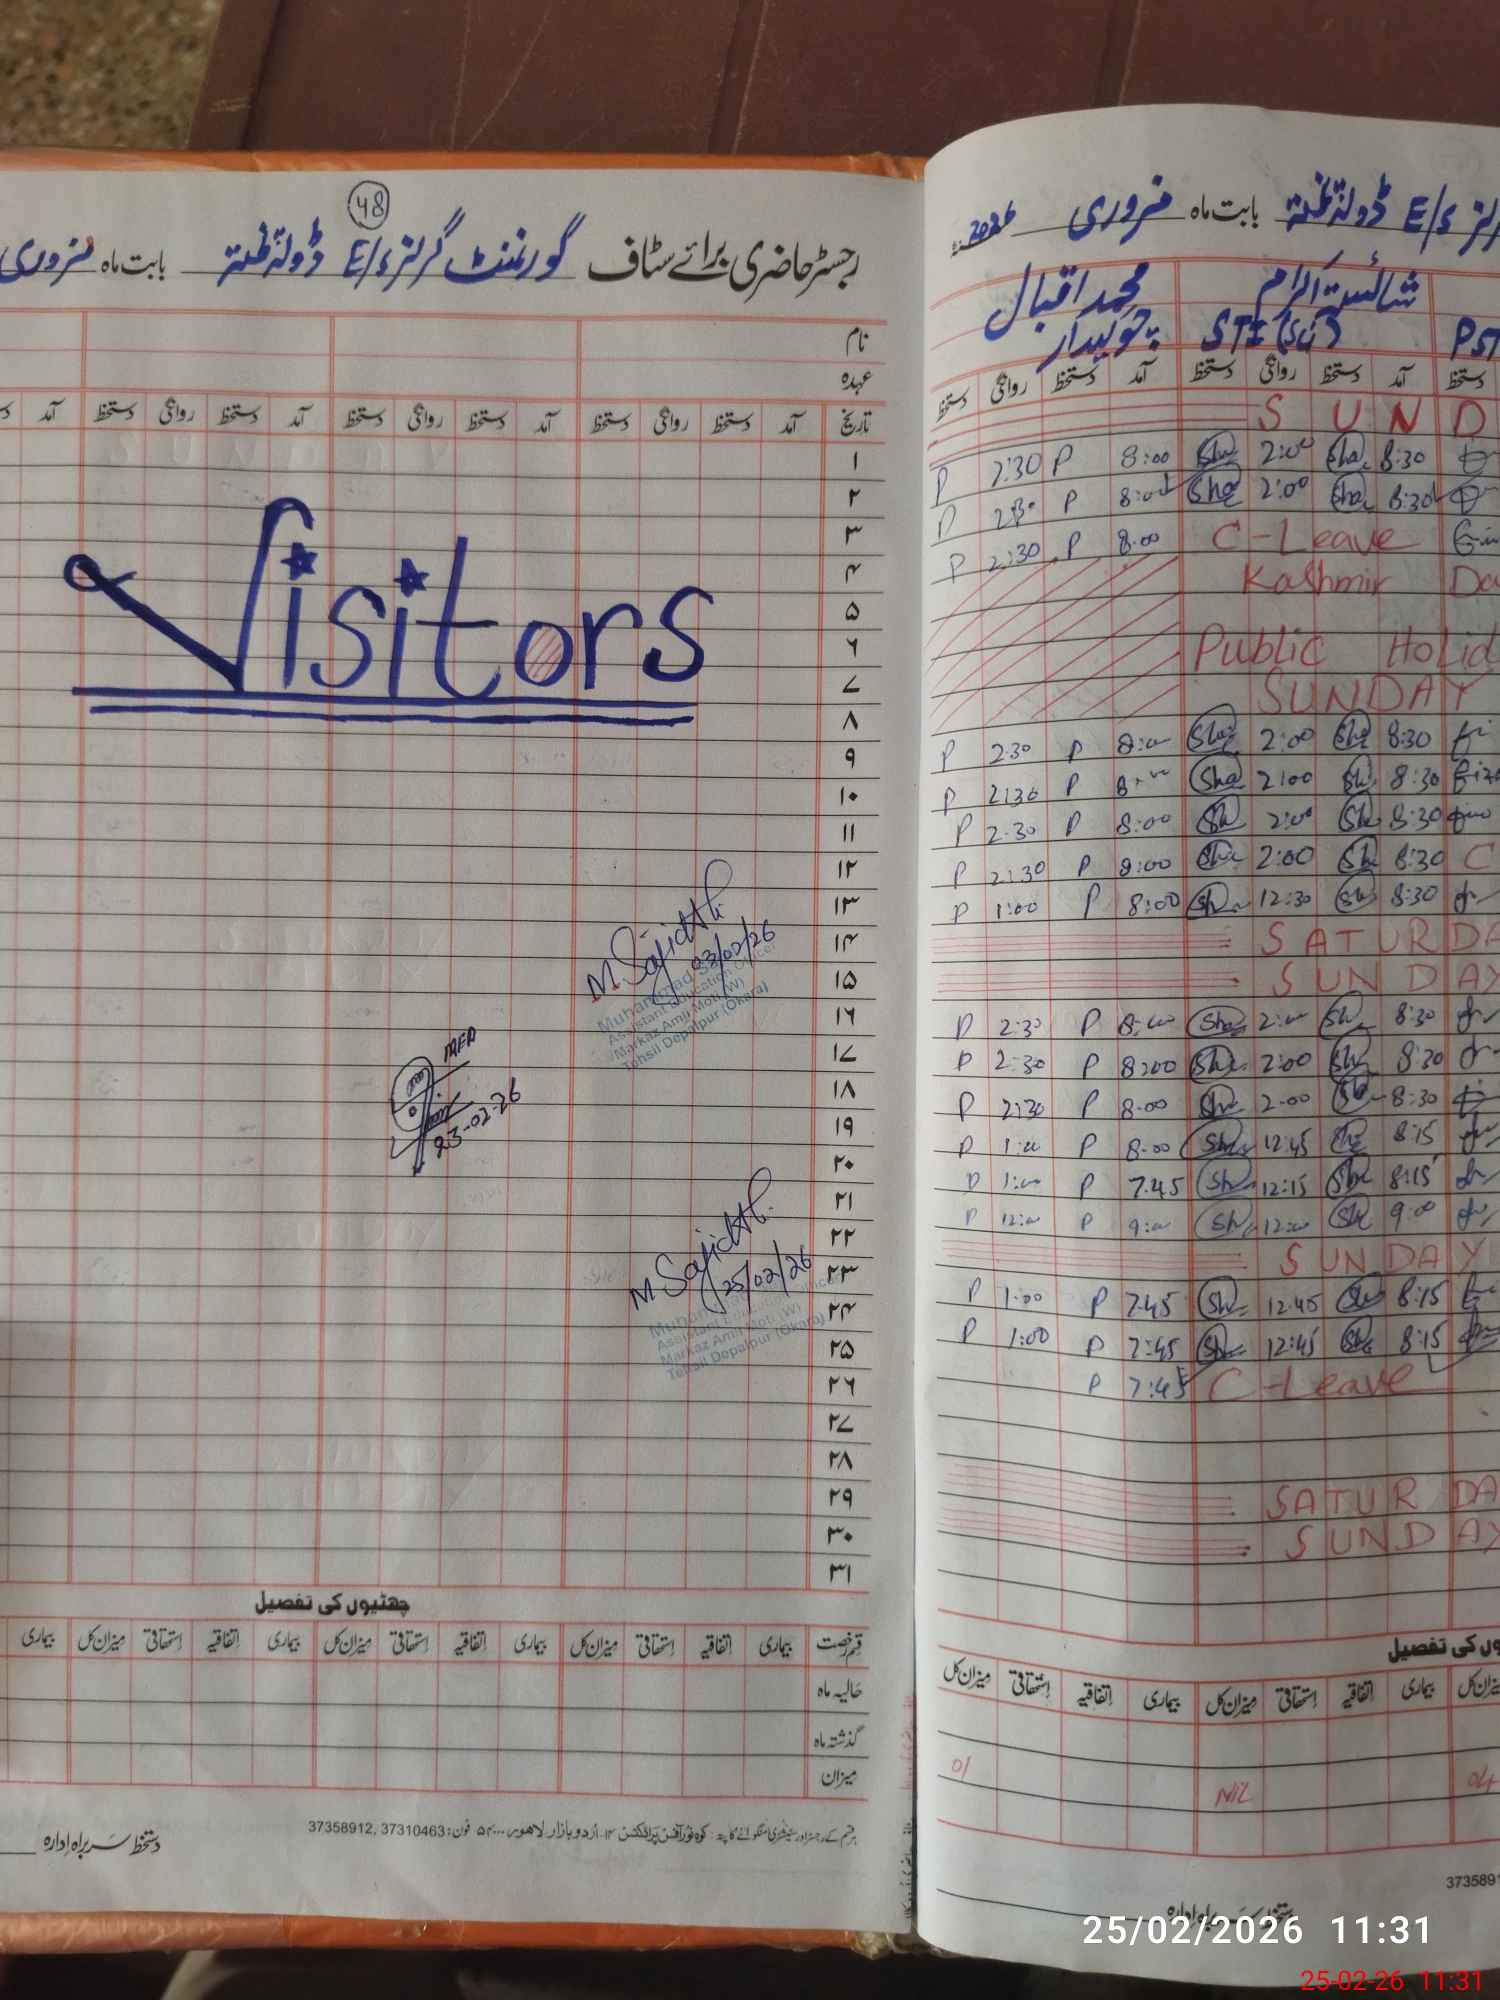 48
رجسٹر حاضری برائے سٹاف گورنمنٹ گرلز E/S بابت ماہ فروری
نام
عہدہ
تاریخ آمد دستخط روانگی دستخط آمد دستخط روانگی دستخط آمد دستخط روانگی دستخط آمد
۱
۲
۳
۴
۵
۶
۷
۸
۹
۱۰
۱۱
۱۲
۱۳
۱۴
۱۵
۱۶
۱۷
۱۸
۱۹
۲۰
۲۱
۲۲
۲۳
۲۴
۲۵
۲۶
۲۷
۲۸
۲۹
۳۰
۳۱
Visitors
M Sajid Ali
03/02/26
Assistant Education Officer
Markaz Amli Moti (W)
Tehsil Depalpur (Okara)
23-02-26
M Sajid Ali
25/02/26
Assistant Education Officer
Markaz Amli Moti (W)
Tehsil Depalpur (Okara)
چھٹیوں کی تفصیل
قسم رخصت بیماری اتفاقیہ استحقاقی میزان کل بیماری اتفاقیہ استحقاقی میزان کل بیماری اتفاقیہ استحقاقی میزان کل بیماری
حالیہ ماہ
گذشتہ ماہ
میزان
اردو بازار لاہور فون: 37310463, 37358912
دستخط سربراہ ادارہ
E/S بابت ماہ فروری 2026
شائستہ اکرام محمد اقبال
PST STI چوکیدار
دستخط آمد دستخط روانگی دستخط آمد دستخط روانگی دستخط
S U N D
P 2:30 P 8:00 Sha 2:00 Sha 8:30
P 2:30 P 8:00 Sha 2:00 Sha 8:30
P 2:30 P 8:00 C-Leave
Kashmir Da
Public Holid
SUNDAY
P 2:30 P 8:00 Sha 2:00 Sha 8:30
P 2:30 P 8:00 Sha 2:00 Sh 8:30
P 2:30 P 8:00 Sh 2:00 Sh 8:30
P 2:30 P 8:00 Sha 2:00 Sh 8:30 C
P 1:00 P 8:00 Sh 12:30 Sh 8:30
SATURDA
SUNDAY
P 2:30 P 8:00 Sha 2:00 Sh 8:30
P 2:30 P 8:00 Sh 2:00 Sh 8:30
P 2:30 P 8:00 Sh 2:00 Sh 8:30
P 1:00 P 8:00 Sha 12:45 Sh 8:15
P 1:00 P 7:45 Sh 12:15 Sh 8:15
P 12:00 P 9:00 Sh 12:00 Sh 9:00
SUNDAY
P 1:00 P 7:45 Sh 12:45 Sh 8:15
P 1:00 P 7:45 Sh 12:45 Sh 8:15
P 7:45 C-Leave
SATURDA
SUNDAY
وں کی تفصیل
میزان کل بیماری اتفاقیہ استحقاقی میزان کل بیماری اتفاقیہ استحقاقی میزان کل
01 NIL 04
3735891
دستخط سربراہ ادارہ
25/02/2026 11:31
25-02-26 11:31